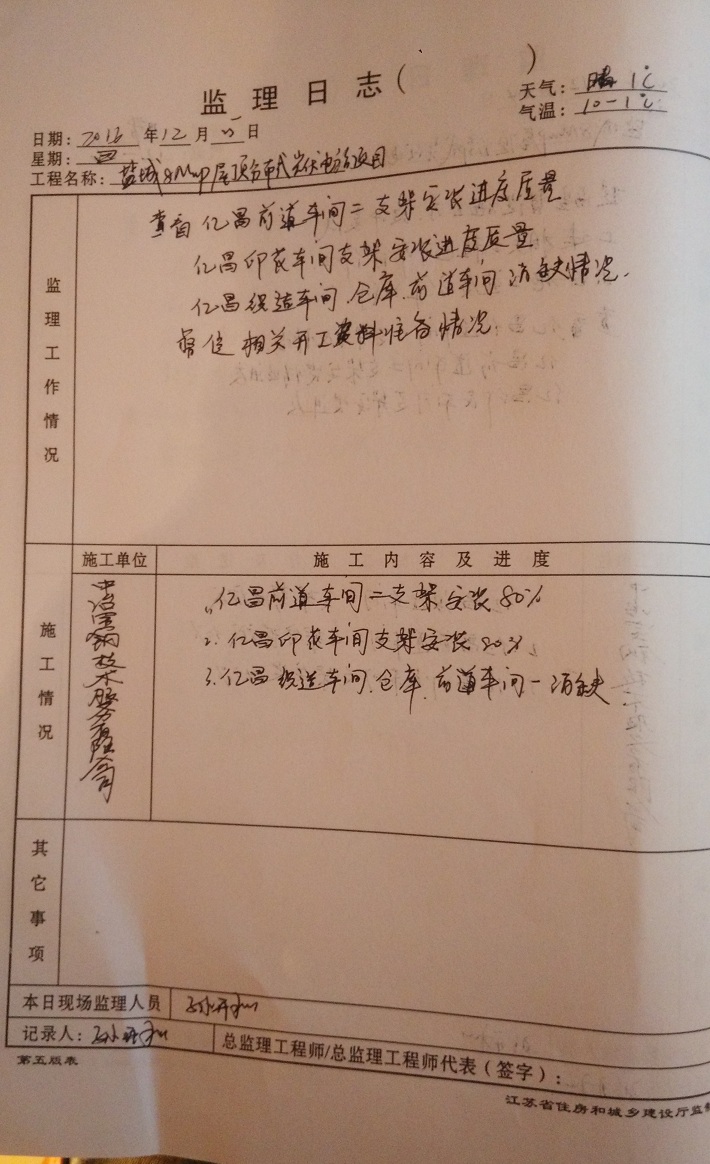 监理日志(          )
天气: 晴 1℃
气温: 10-1℃
日期: 2016 年 12 月 日
星期: 四
工程名称: 盐城 屋顶分布式光伏电站项目
监理工作情况
查看亿昌前道车间二支架安装进度质量
亿昌印花车间支架安装进度质量
亿昌织造车间.仓库.前道车间消缺情况.
督促相关开工资料准备情况
施工情况
施工单位
施工内容及进度
技术服务有限公司
1.亿昌前道车间二支架安装80%
2.亿昌印花车间支架安装20%
3.亿昌织造车间.仓库.前道车间一消缺
其它事项
本日现场监理人员
记录人:
总监理工程师/总监理工程师代表(签字):
第五版表
江苏省住房和城乡建设厅监制